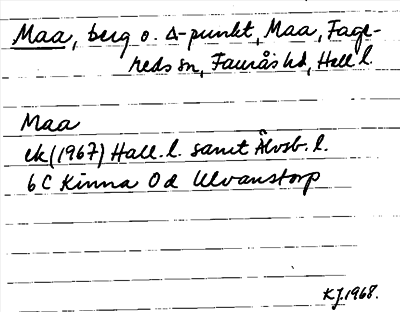 Maa, berg o. Δ-punkt, Maa, Fage-
reds sn, Faurås hd, Hall l.
Maa
ek (1967) Hall. l. samt Älvsb. l.
6 C Kinna 0 d Ulvanstorp
KJ. 1968.